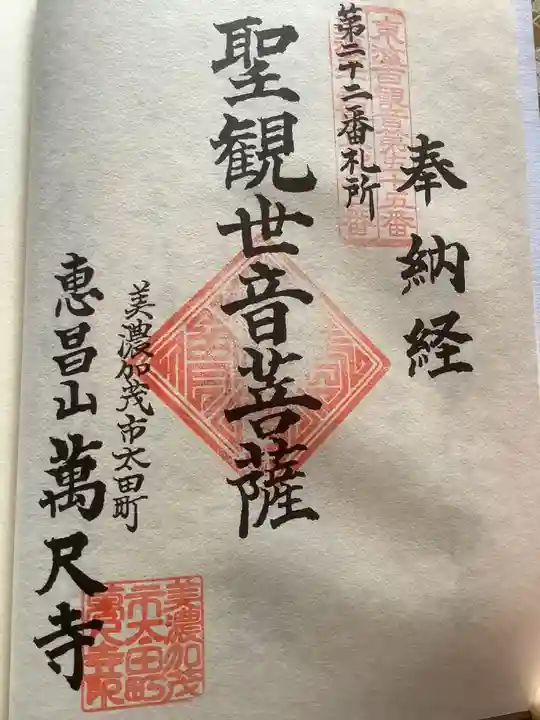 奉納経
第二十二番札所
聖観世音菩薩
美濃加茂市太田町
恵昌山萬尺寺
美濃加茂
市太田町
萬尺寺印